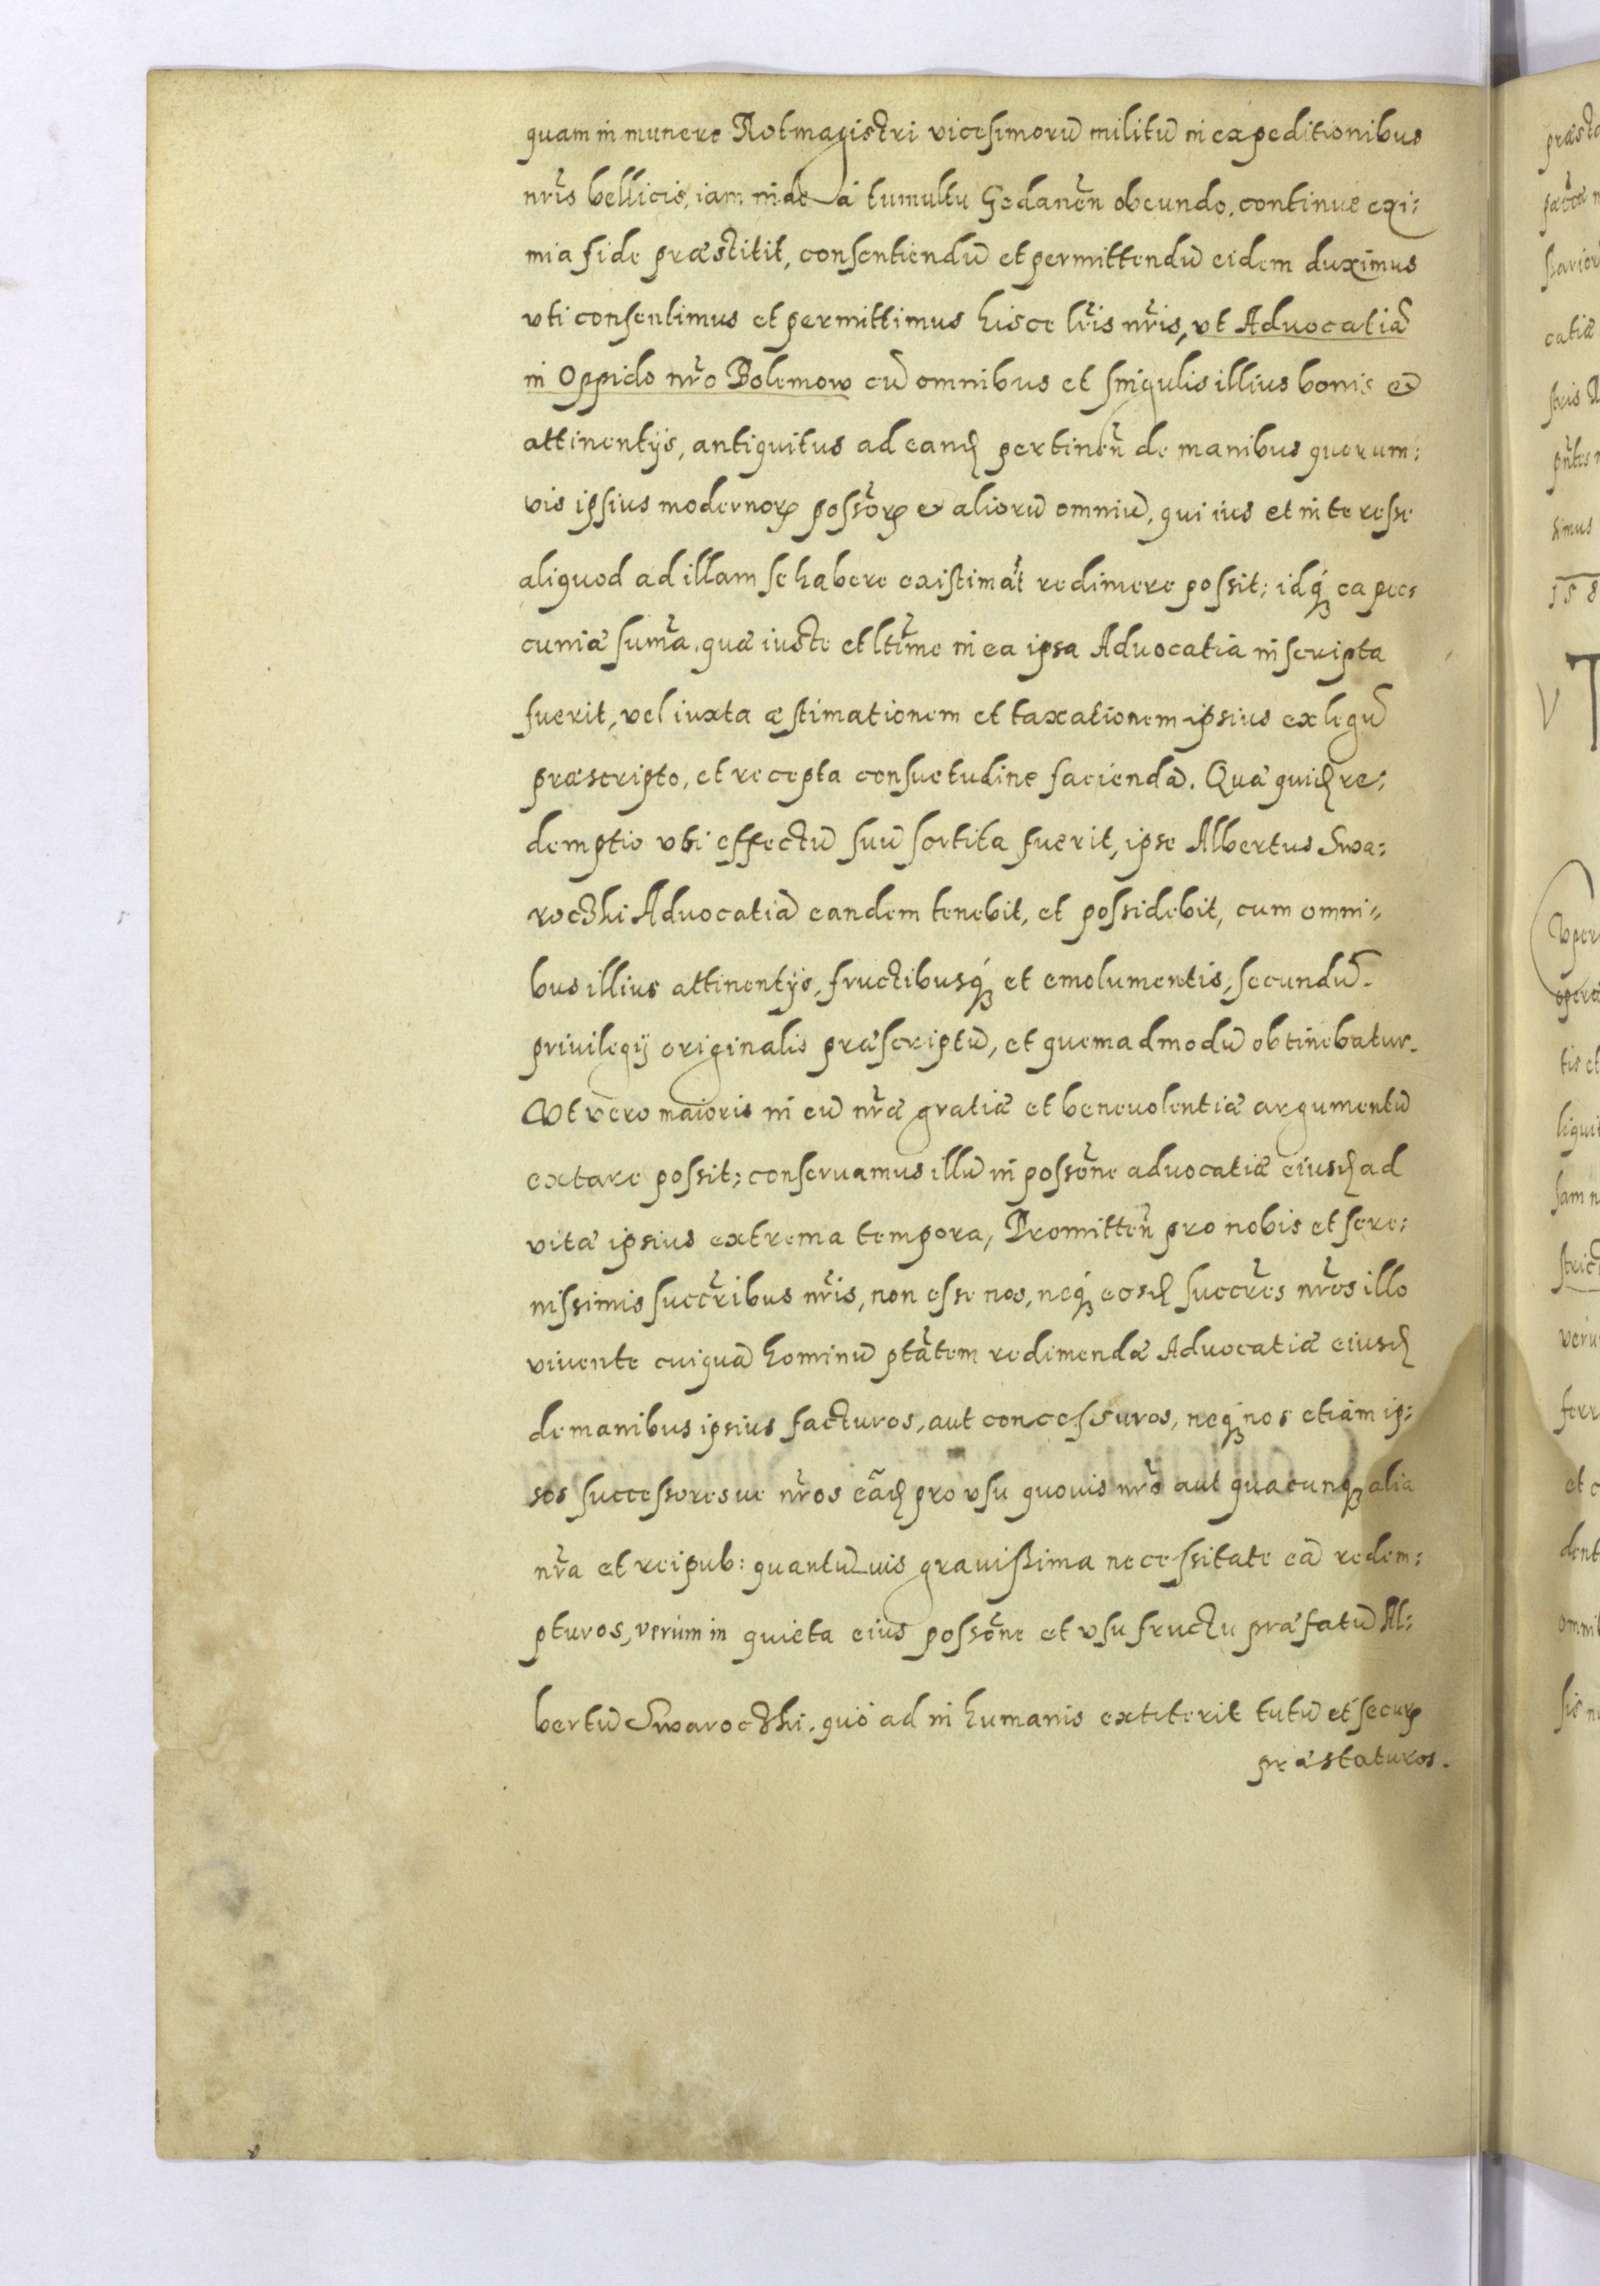 quam in munere Rotmagistri vicesimorū militū in expeditionibus
nr̃is bellicis, iam inde a tumultu Gedanen̄ obeundo, continue exi:
mia fide præstitit, consentiendū et permittendū eidem duximus
vti consentimus et permittimus hisce lr̃is nr̃is, vt Advocatiā
in Oppido nr̃o Bolemow cū omnibus et singulis illius bonis et
attinentijs, antiquitus ad eand pertinen̄ de manibus quorum:
vis ipsius modernoꝝ posšoꝝ et aliorū omniū, qui ius et interesse
aliquod ad illam se habere existimāt redimere possit; idqꝫ ea pec:
cuniæ sum̃a, quæ iuste et ltĩme in ea ipsa Advocatia inscripta
fuerit, vel iuxta æstimationem et taxationem ipsius ex legū
præscripto, et recepta consuetudine faciendā. Quæ quid re:
demptio vbi effectū suū sortita fuerit, ipse Albertus Swa:
roczki Advocatiā eandem tenebit, et possidebit, cum omni=
bus illius attinentijs, fructibusqꝫ et emolumentis, secundū
privilegij originalis præscriptū, et quemadmodū obtinebatur.
Vt vero maioris in eū nr̃æ gratiæ et benevolentiæ argumentū
extare possit; conservamus illū in possõne advocatiæ eiusd ad
vitæ ipsius extrema tempora, Promitten̄ pro nobis et sere:
nissimis succr̃ibus nr̃is, non esse nos, neqꝫ eosd succr̃es nr̃os illo
vivente cuiquā hominū ptātem redimendæ Advocatiæ eiusd
de manibus ipsius facturos, aut concessuros, neqꝫ nos etiam ip:
sos successoresve nr̃os eād pro vsu quovis nr̃o aut quacunqꝫ alia
nr̃a et reipub: quantūvis gravissima necessitate eā redem:
pturos, verum in quieta eius possõne et vsufructu præfatū Al:
bertū Swaroczki, quo ad in humanis extiterit tutū et secuꝝ
præstaturos.